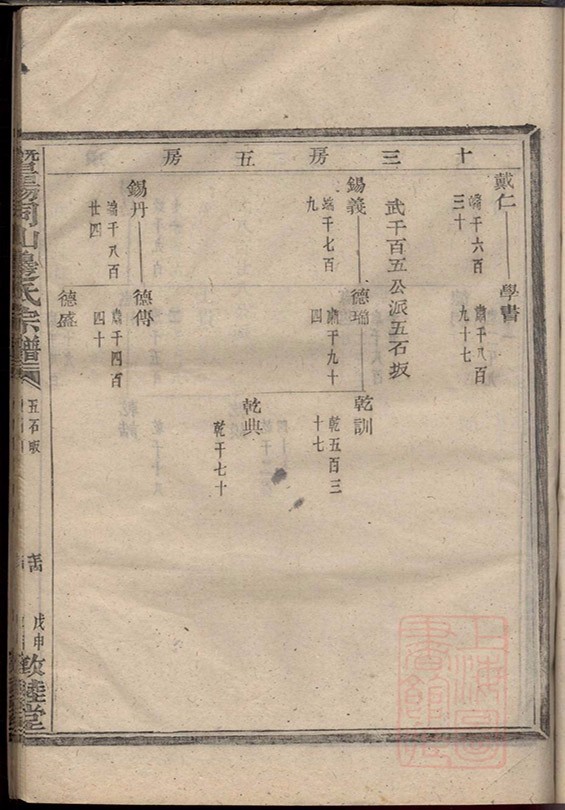 十三房五房
戴仁
端千六百
三十
學書
肅千八百
九十七
武千百五公派五石坂
錫義
端千七百
九
德瑞
肅千九十
四
乾訓
乾五百三
十七
乾典
乾千七十
錫丹
端千八百
廿四
德傳
肅千四百
四十
德盛
山邊氏宗譜
五石坂
戊申
敦睦堂
上海圖
書館藏